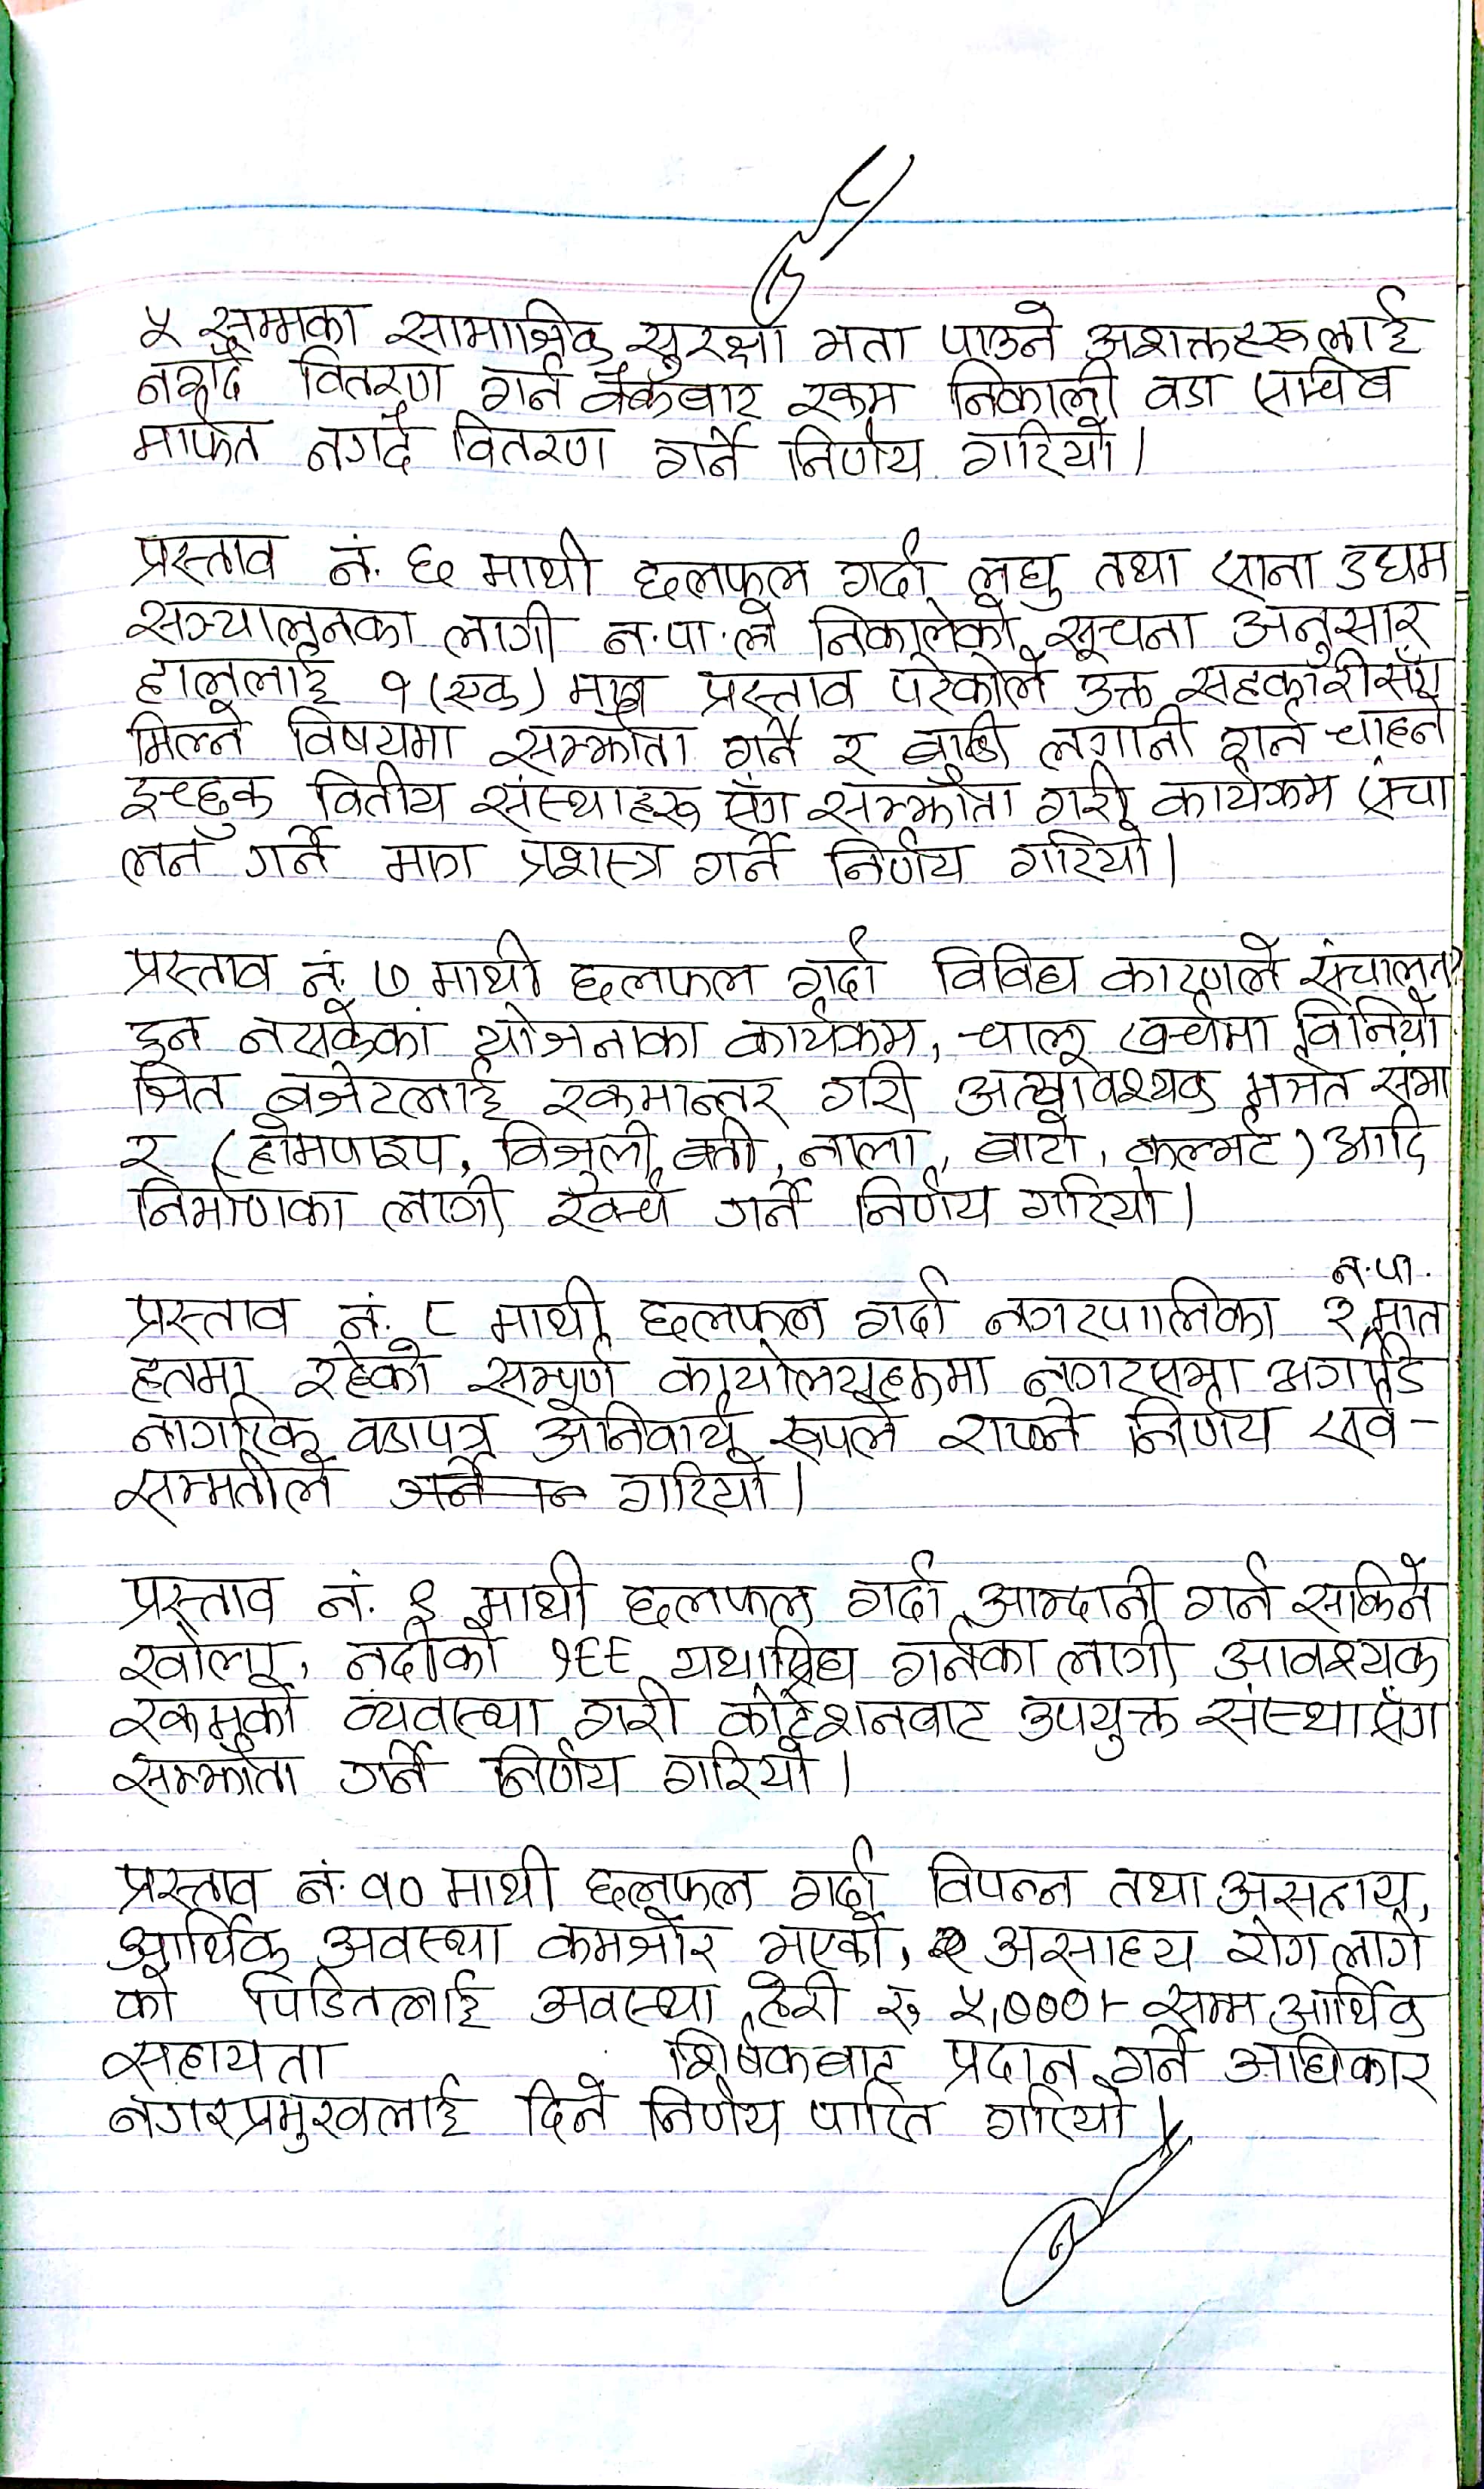 ५ सम्मका सामाजिक सुरक्षा भता पाउने अशक्तहरूलाई
नगदै वितरण गर्न बैंकबाट रकम निकाली वडा सचिब
मार्फत नगदै वितरण गर्ने निर्णय गरियो।
प्रस्ताव नं. ६ माथी छलफल गर्दा लघु तथा साना उद्यम
सञ्चालनका लागी न.पा.ले निकालेको सूचना अनुसार
हाललाई १(एक) मात्र प्रस्ताव परेकोले उक्त सहकारीसँग
मिल्ने विषयमा सम्झौता गर्ने र बाँकी लगानी गर्न चाहने
इच्छुक वितीय संस्थाहरू सँग सम्झौता गरी कार्यक्रम संचा
लन गर्ने मार्ग प्रशस्त्र गर्ने निर्णय गरियो।
प्रस्ताव नं. ७ माथी छलफल गर्दा विविध कारणले संचालन
हुन नसकेका योजनाका कार्यक्रम, चालू खर्चमा विनियो
जित बजेटलाई रकमान्तर गरी अत्यावश्यक मर्मत संभा
र (होमपाइप, विजुली बती, नाला, बाटो, कल्भर्ट) आदि
निर्माणका लागी खर्च गर्ने निर्णय गरियो।
न.पा.
प्रस्ताव नं. ८ माथी छलफल गर्दा नगरपालिका र मात
हतमा रहेको सम्पूर्ण कार्यालयहरूमा नगरसभा अगाडि
नागरिक वडापत्र अनिवार्य रूपले राख्ने निर्णय सर्व-
सम्मतीले गर्ने नि गरियो।
प्रस्ताव नं. ९ माथी छलफल गर्दा आम्दानी गर्न सकिने
खोला, नदीको IEE यथासिघ्र गर्नका लागी आवश्यक
रकमको व्यवस्था गरी कोटेशनबाट उपयुक्त संस्थासँग
सम्झौता गर्ने निर्णय गरियो।
प्रस्ताव नं. १० माथी छलफल गर्दा विपन्न तथा असहाय,
आर्थिक अवस्था कमजोर भएको, र असाध्य रोग लागे
को पिडितलाई अवस्था हेरी रू ५,०००।- सम्म आर्थिक
सहायता शिर्षकबाट प्रदान गर्ने अधिकार
नगरप्रमुखलाई दिने निर्णय पारित गरियो।